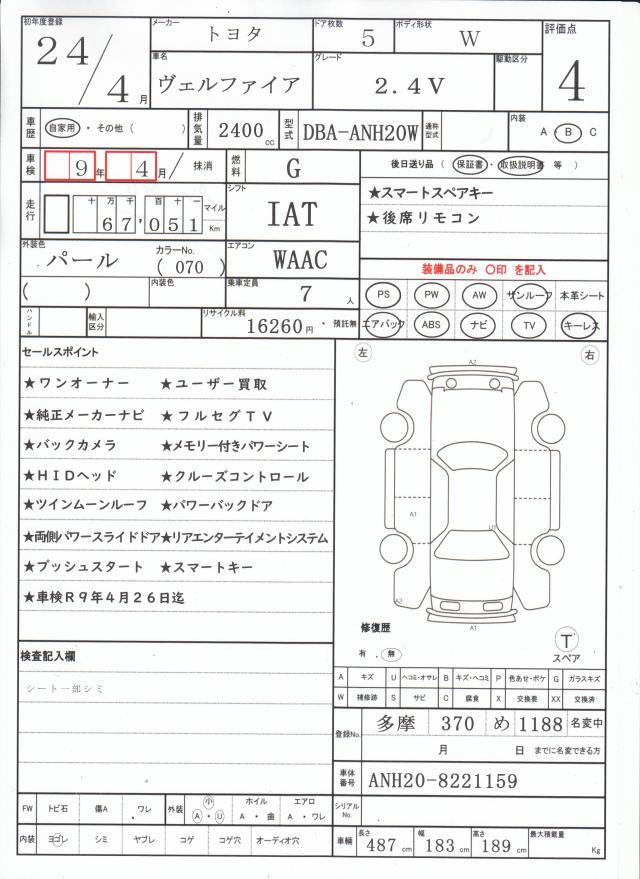 初年度登録 24/4月 メーカー トヨタ ドア枚数 5 ボディ形状 W 評価点 4
車名 ヴェルファイア グレード 2.4V 駆動区分
車歴 自家用・その他( ) 排気量 2400cc 型式 DBA-ANH20W 通称型式 内装 A・B C
車検 9年4月/ 抹消 燃料 G 後日送り品(保証書・取扱説明書 等)
★スマートスペアキー
★後席リモコン
走行 十万千百十一 67,051 マイル Km シフト IAT
外装色 パール カラーNo. (070) エアコン WAAC 装備品のみ ○印 を記入
( ) 内装色 乗車定員 7人 PS PW AW サンルーフ 本革シート
ハンドル 輸入区分 リサイクル料 16260円・預託無 エアバック ABS ナビ TV キーレス
セールスポイント 左 右
★ワンオーナー ★ユーザー買取 A2
★純正メーカーナビ ★フルセグTV
★バックカメラ ★メモリー付きパワーシート
★HIDヘッド ★クルーズコントロール
★ツインムーンルーフ ★パワーバックドア A1 U1
★両側パワースライドドア★リアエンターテイメントシステム
★プッシュスタート ★スマートキー
★車検R9年4月26日迄 A2 A1
修復歴 T
有.無 スペア
検査記入欄
シート一部シミ
A キズ U ヘコミ・オサレ B キズ・ヘコミ P 色あせ・ボケ G ガラスキズ
W 補修跡 S サビ C 腐食 X 交換要 XX 交換済
登録No. 多摩 370 め 1188 名変中
月 日 までに名変できる方
車体番号 ANH20-8221159
FW トビ石 傷A ワレ 外装 小 A・U ホイル A・曲 エアロ A・ワレ シリアルNo.
内装 ヨゴレ シミ ヤブレ コゲ コゲ穴 オーディオ穴 車輌 長さ 487cm 幅 183cm 高さ 189cm 最大積載量 Kg